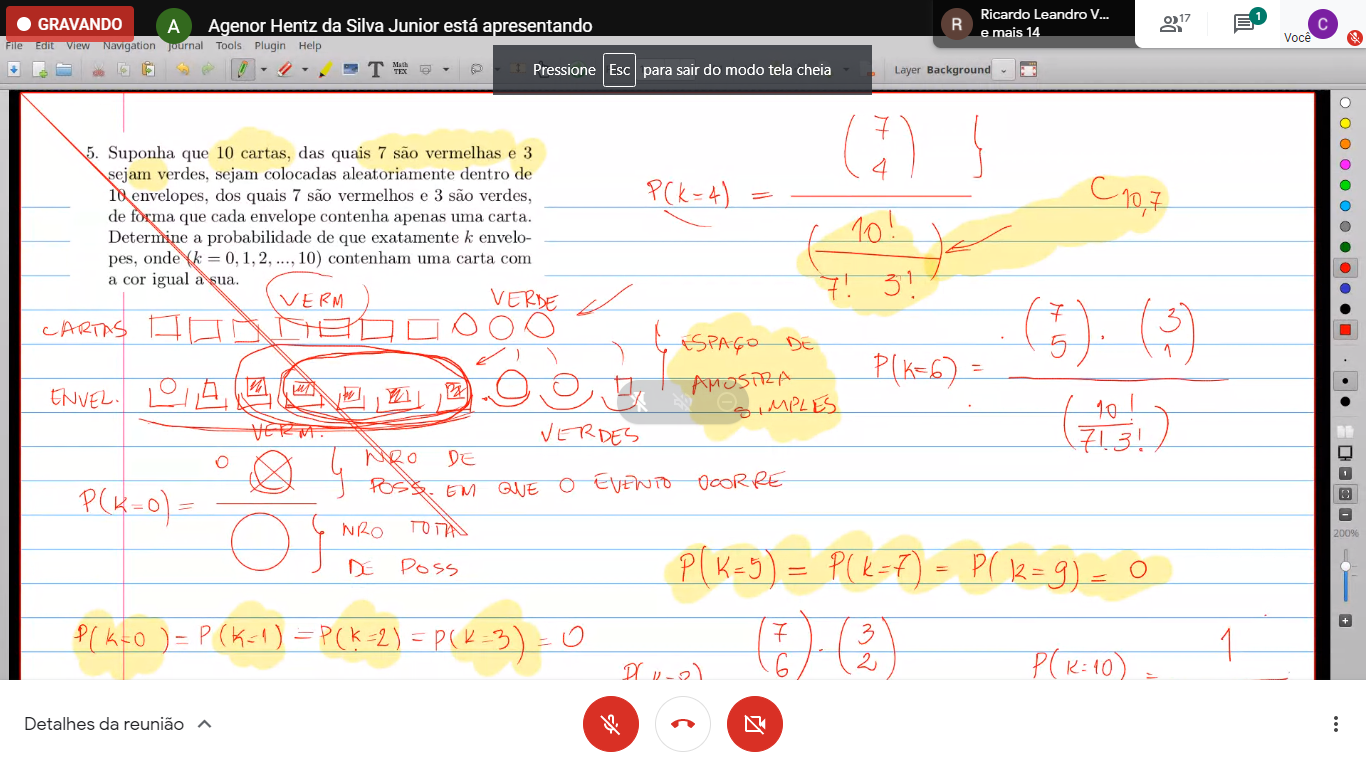 GRAVANDO
A
Agenor Hentz da Silva Junior está apresentando
R
Ricardo Leandro V...
e mais 14
17
1
Você
C
File Edit View Navigation Journal Tools Plugin Help
Pressione Esc para sair do modo tela cheia
T Math TEX
Layer Background
5. Suponha que 10 cartas, das quais 7 são vermelhas e 3
sejam verdes, sejam colocadas aleatoriamente dentro de
10 envelopes, dos quais 7 são vermelhos e 3 são verdes,
de forma que cada envelope contenha apenas uma carta.
Determine a probabilidade de que exatamente k envelo-
pes, onde (k = 0, 1, 2, ..., 10) contenham uma carta com
a cor igual a sua.
VERM VERDE
CARTAS
ENVEL.
VERM. VERDES
ESPAÇO DE
AMOSTRA
SIMPLES
P(K=0) =
0
NRO DE
POSS. EM QUE O EVENTO OCORRE
NRO TOTAL
DE POSS
P(K=0) = P(K=1) = P(K=2) = P(K=3) = 0
P(K=4) =
(7 4)
(10! / 7! 3!)
C10,7
P(K=6) =
(7 5) . (3 1)
(10! / 7! 3!)
P(K=5) = P(K=7) = P(K=9) = 0
(7 6) . (3 2)
P(K=10) =
1
200%
Detalhes da reunião